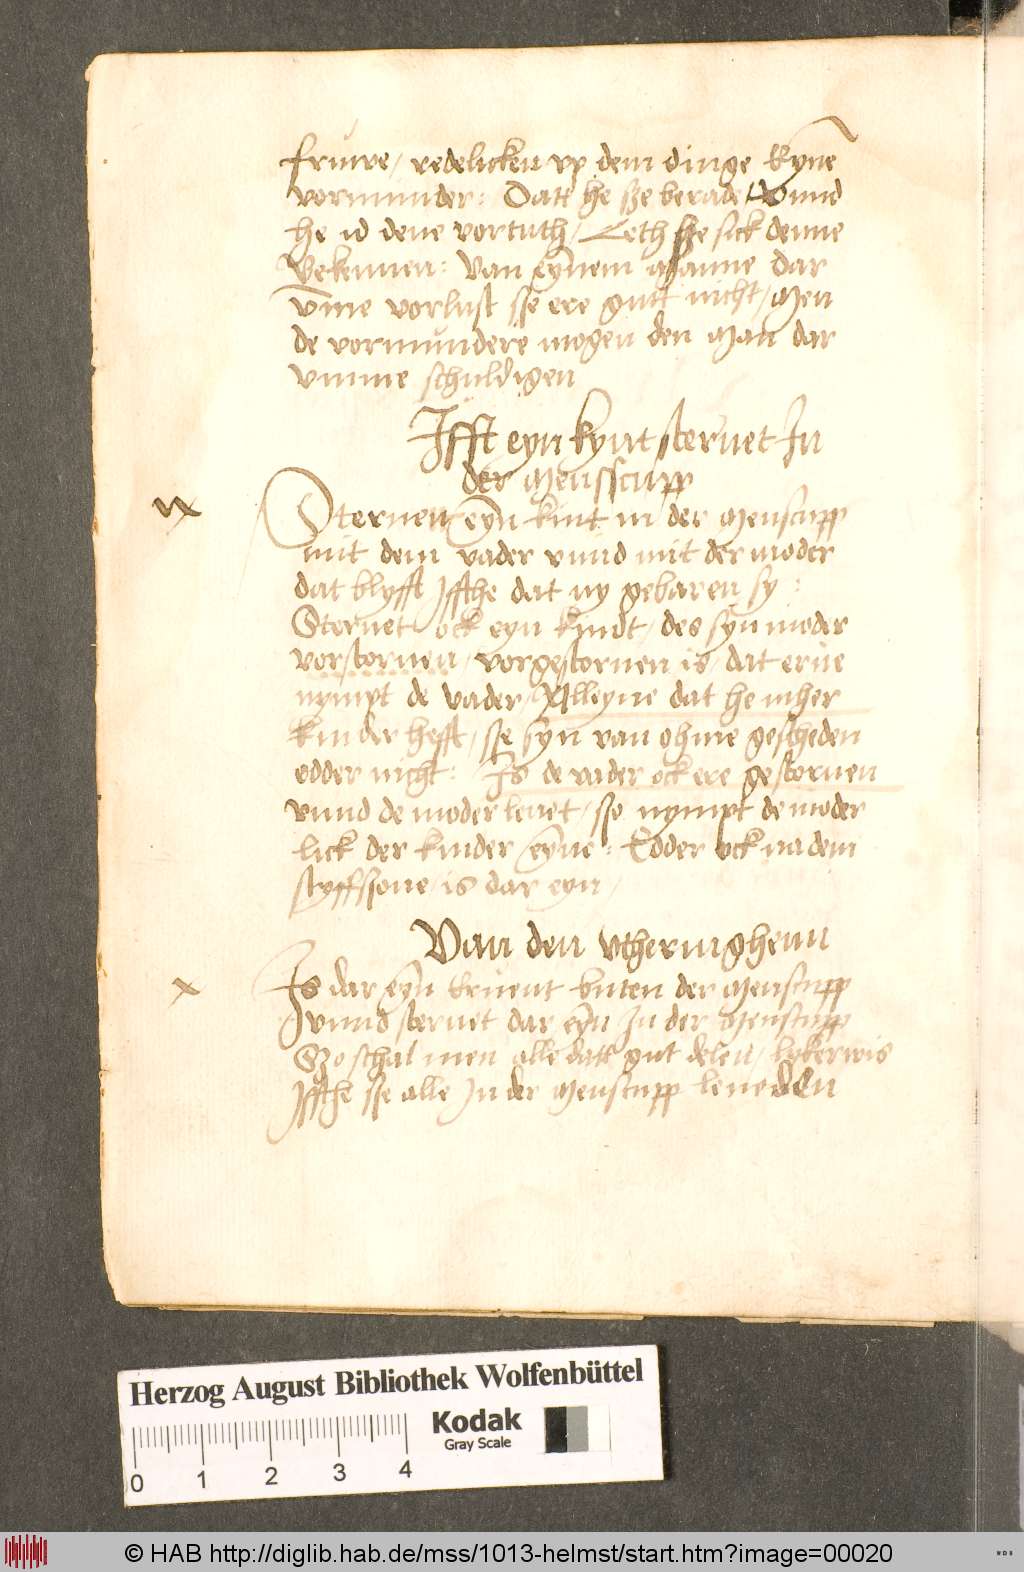 fruwe / redelicken vp dem dinge kyne
vormunder : Datt he sze berade / Vnnd
he id dene vortuth / Leth he sick denne
bekennen : Van eynem Manne dar
vmme vorlust sse ere gutt nicht / Men
de vormundere mogen den Man dar
vmme schuldigen
Ifft eyn kynt steruet In
der Mensscupp
ix
Steruen eyn kint in der Menscupp
mit dem vader vnnd mit der moder
dat blyfft Iffthe dat ny gebaren sy :
Steruet ock eyn kindt / des syn moder
vorstoruen / vorgestoruen is / dat erue
nympt de vader / Alleyne dat he mher
kinder hefft / sse syn van ohme gescheden
edder nicht : Is de vader ock ere gestoruen
vnnd de moder leuet / sso nympt de moder
lick der kinder eyne : Edder ock na dem
styffssone is dar eyn /
Van den vtheringhenn
x
Is dar eyn kruent buten der Menscupp
vnnd steruet dar eyn In der Menscupp
Szo schal men alle datt gut delen / lykerwis
Iffthe sse alle In der Menscupp leueden
Herzog August Bibliothek Wolfenbüttel
Kodak
Gray Scale
0 1 2 3 4
© HAB http://diglib.hab.de/mss/1013-helmst/start.htm?image=00020